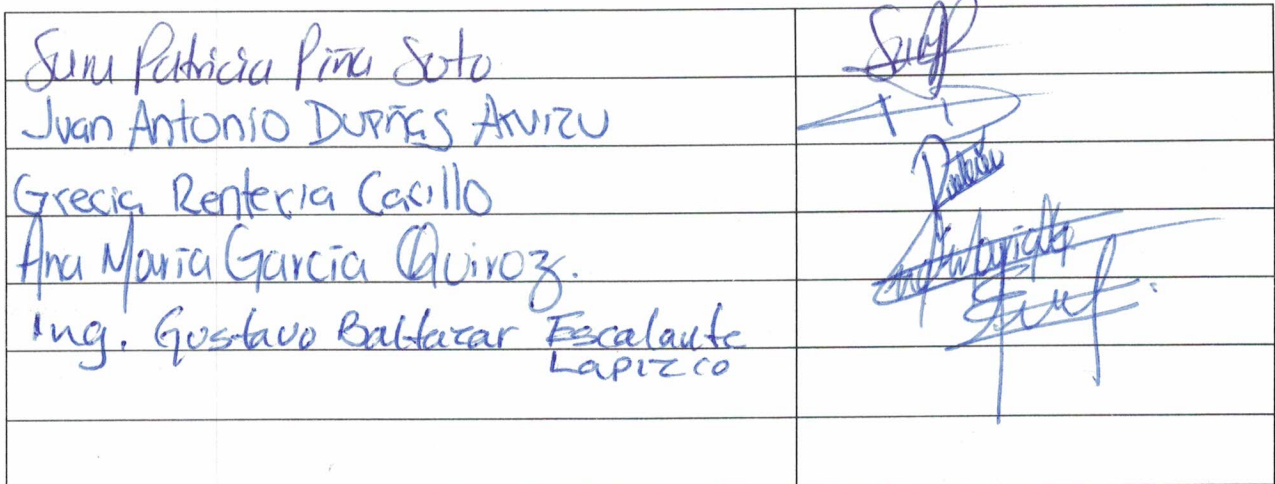 Patricia Piña Soto
Juan Antonio Dueñas Arvizu
Grecia Renteria Casillo
Ana María García Quiroz.
Ing. Gustavo Baltazar Escalante
Lapizco